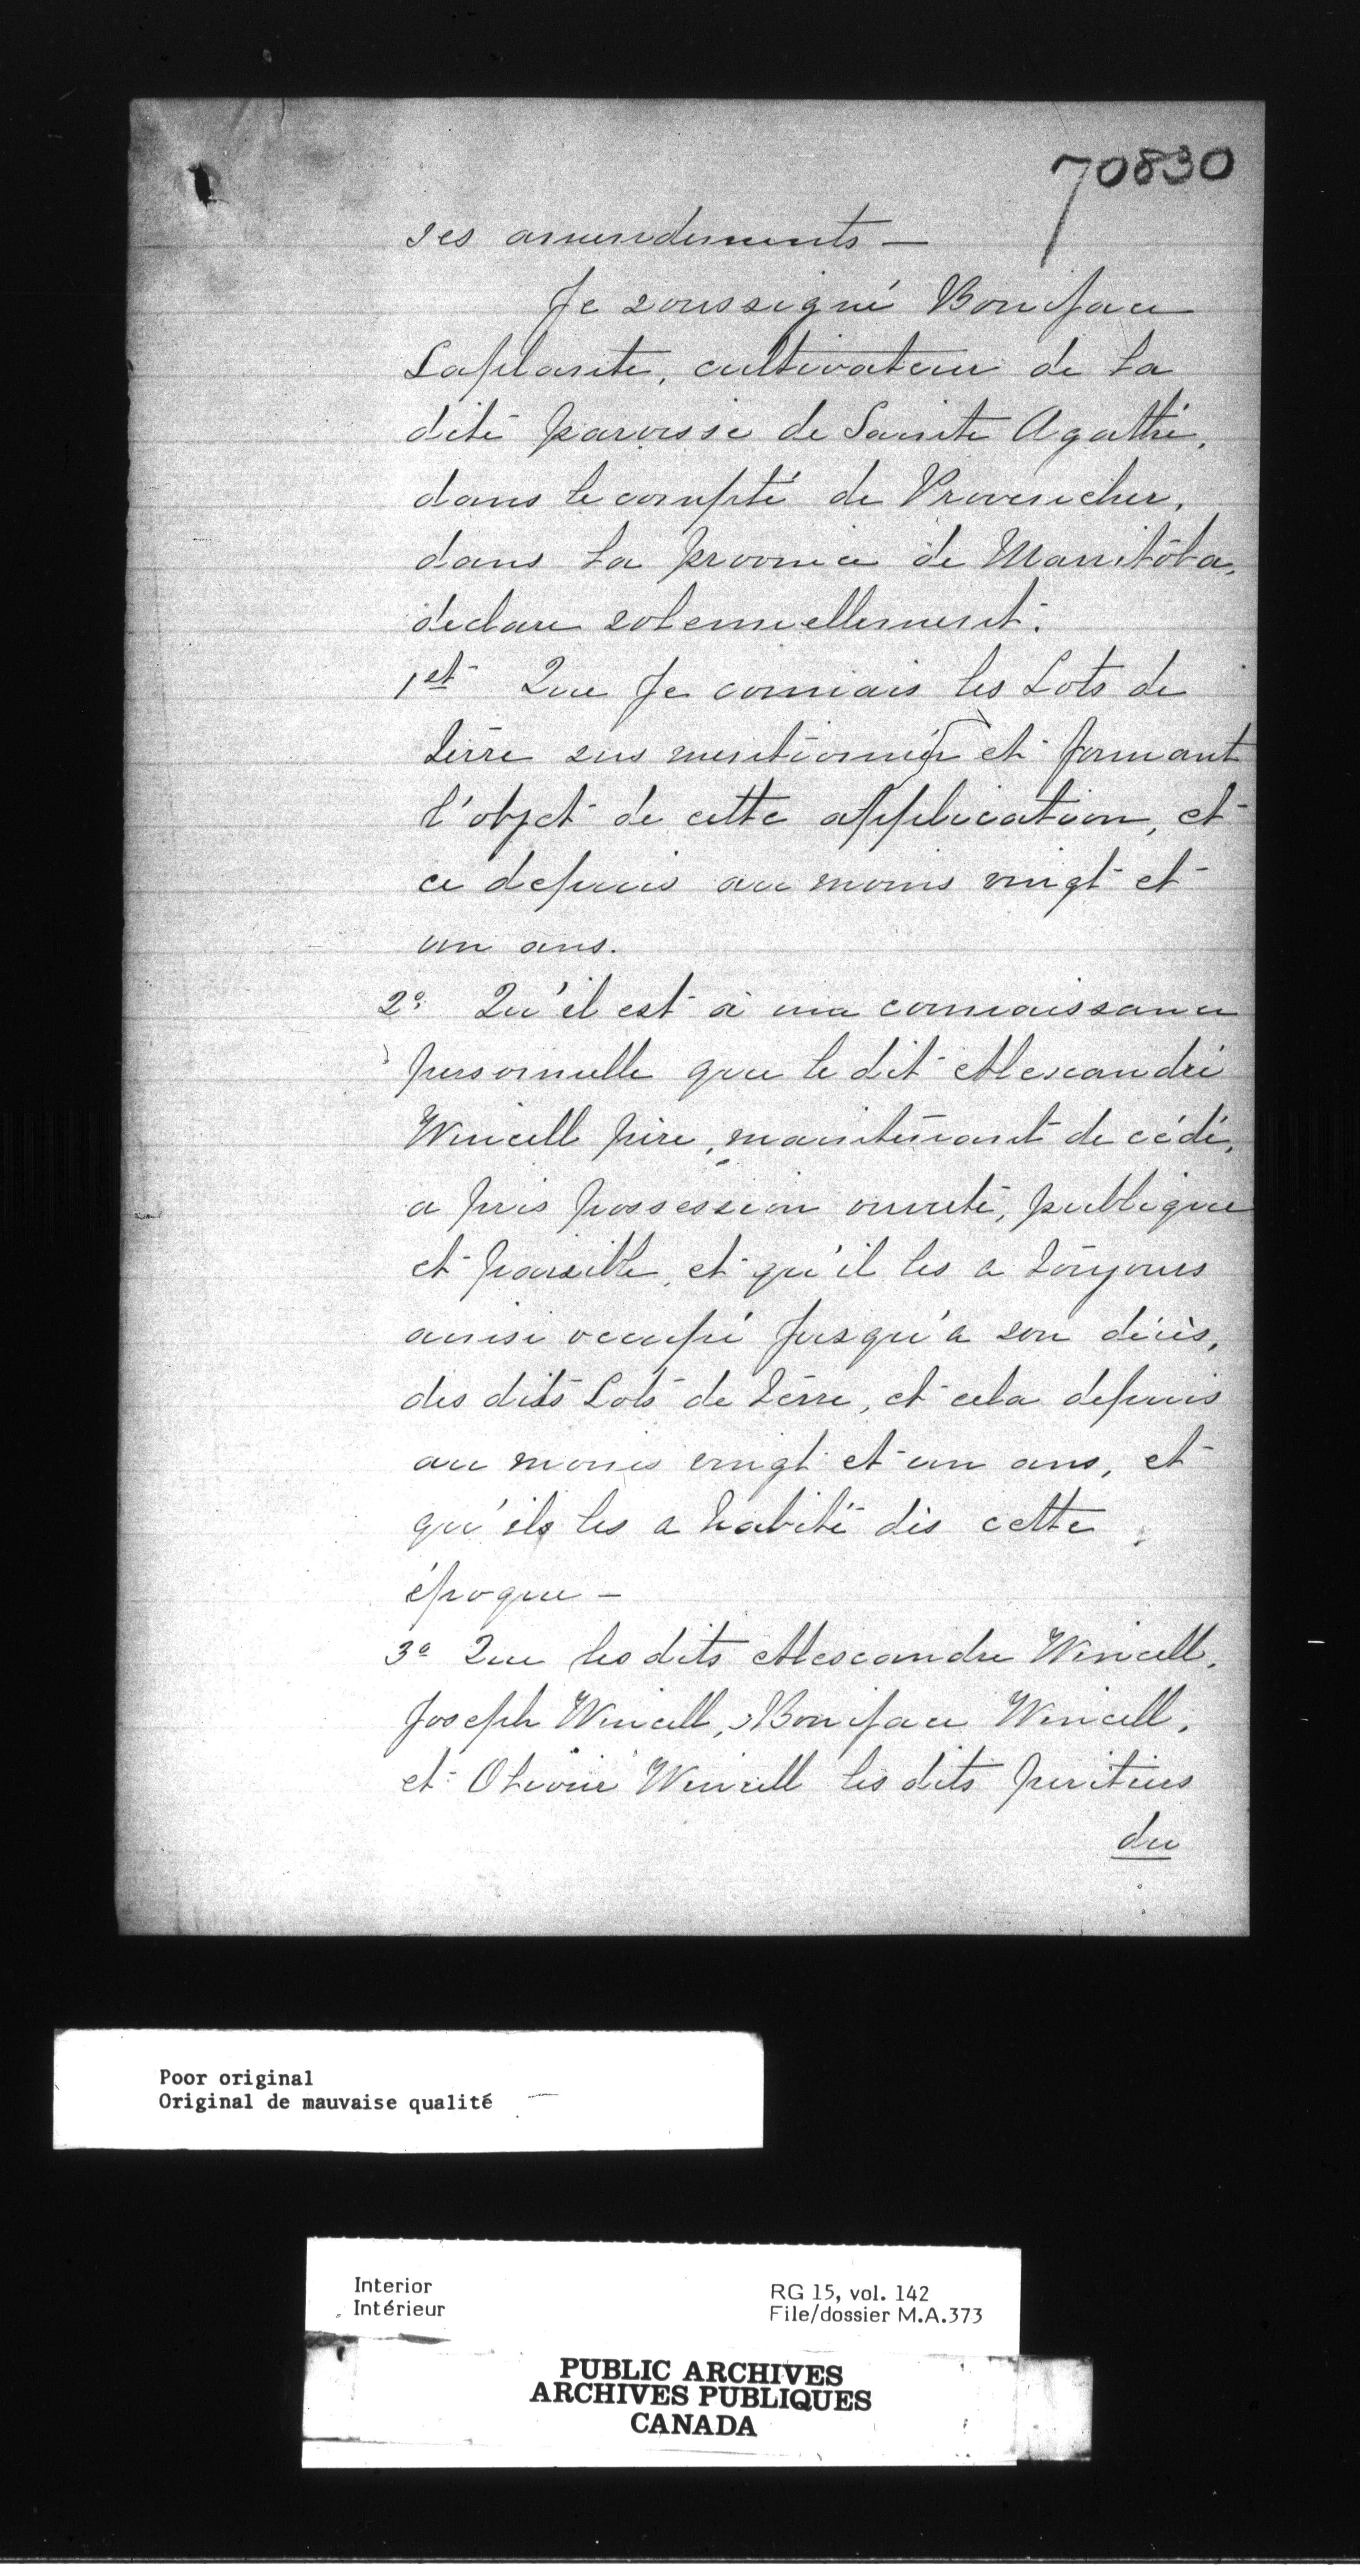 70830
ses amendements —
Je soussigné Boniface
Laplante, cultivateur de la
dite paroisse de Sainte Agathe,
dans le compté de Provencher,
dans la province de Manitoba,
declare solennellement:
1et Que Je connais les Lots de
terre sus mentionnés et formant
l'objet de cette application, et
ce depuis au moins vingt et
un ans.
2o Qu'il est à ma connaissance
personnelle que le dit Alexandre
Wincell père, maintenant décédé,
a pris possession ouverte, publique
et paisible, et qu'il les a toujours
ainsi occupé Jusqu'a son décès,
des dits Lots de terre, et cela depuis
au moins vingt et un ans, et
qu'ils les a habité dès cette
époque —
3o Que les dits Alexandre Wincell,
Joseph Wincell, Boniface Wincell,
et Olivier Wincell les dits
du
Poor original
Original de mauvaise qualité
Interior
Intérieur
RG 15, vol. 142
File/dossier M.A.373
PUBLIC ARCHIVES
ARCHIVES PUBLIQUES
CANADA